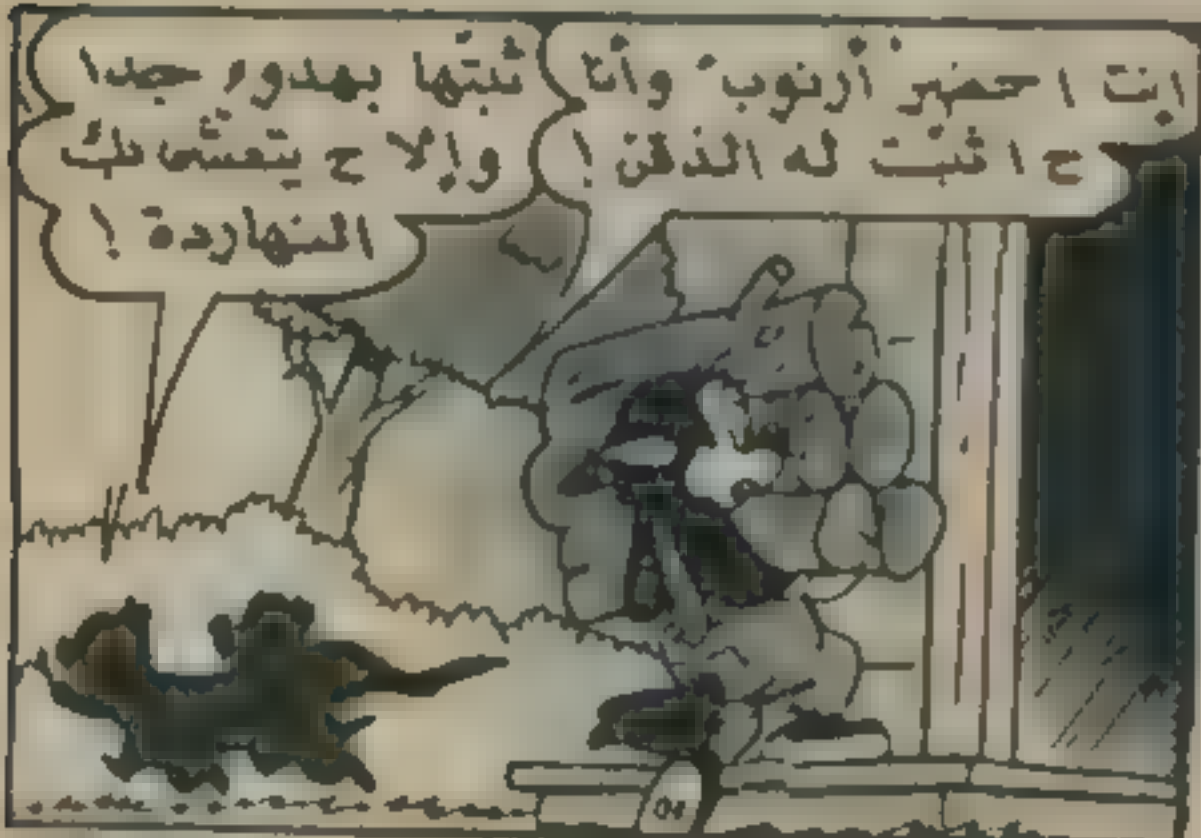 انت احضر أرنوب وأنا
ح اثبت له الذقن !
ثبتها بهدوء جدا
وإلا ح يتعشى بك
النهاردة !